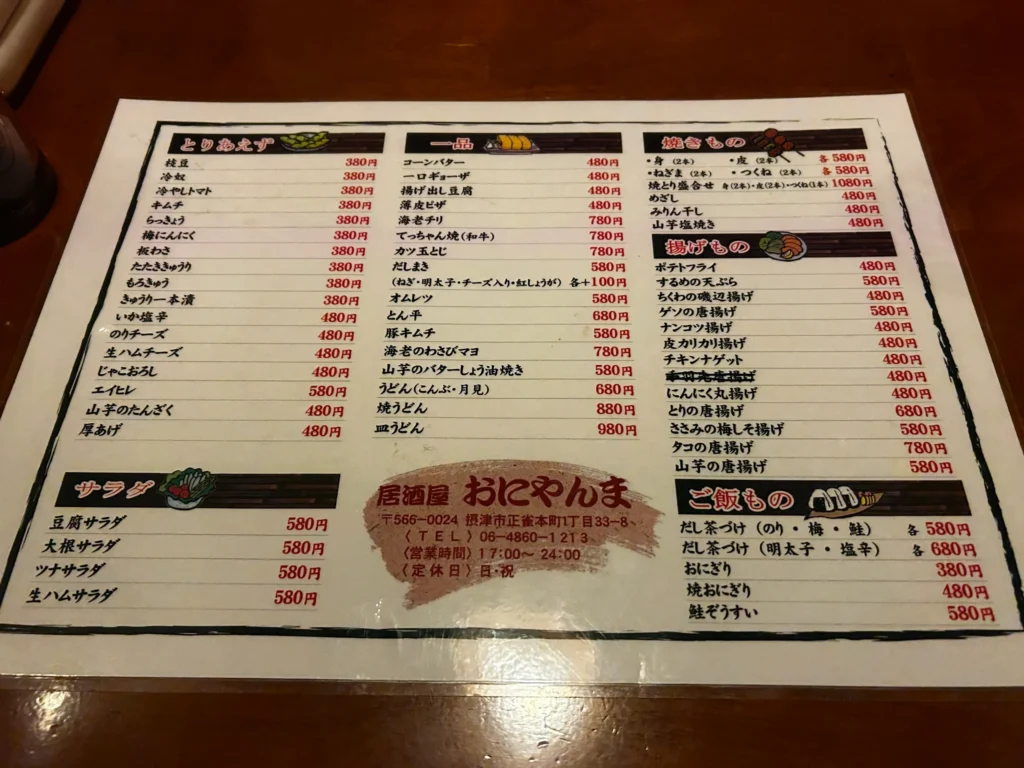 とりあえず
枝豆 380円
冷奴 380円
冷やしトマト 380円
キムチ 380円
らっきょう 380円
梅にんにく 380円
板わさ 380円
たたききゅうり 380円
もろきゅう 380円
きゅうり一本漬 380円
いか塩辛 480円
のりチーズ 480円
生ハムチーズ 480円
じゃこおろし 480円
エイヒレ 580円
山芋のたんざく 480円
厚あげ 480円
サラダ
豆腐サラダ 580円
大根サラダ 580円
ツナサラダ 580円
生ハムサラダ 580円
一品
コーンバター 480円
一口ギョーザ 480円
揚げ出し豆腐 480円
薄皮ピザ 480円
海老チリ 780円
てっちゃん焼(和牛) 780円
カツ玉とじ 780円
だしまき 580円
(ねぎ・明太子・チーズ入り・紅しょうが) 各+100円
オムレツ 580円
とん平 680円
豚キムチ 580円
海老のわさびマヨ 780円
山芋のバターしょう油焼き 580円
うどん(こんぶ・月見) 680円
焼うどん 880円
皿うどん 980円
居酒屋 おにやんま
〒566-0024 摂津市正雀本町1丁目33-8
〈TEL〉06-4860-1213
〈営業時間〉17:00〜24:00
〈定休日〉日・祝
焼きもの
・身(2本) ・皮(2本) 各580円
・ねぎま(2本) ・つくね(2本) 各580円
焼とり盛合せ 身(2本)・皮(2本)・つくね(1本) 1080円
めざし 480円
みりん干し 480円
山芋塩焼き 480円
揚げもの
ポテトフライ 480円
するめの天ぷら 580円
ちくわの磯辺揚げ 480円
ゲソの唐揚げ 580円
ナンコツ揚げ 480円
皮カリカリ揚げ 480円
チキンナゲット 480円
480円
にんにく丸揚げ 480円
とりの唐揚げ 680円
ささみの梅しそ揚げ 580円
タコの唐揚げ 780円
山芋の唐揚げ 580円
ご飯もの
だし茶づけ(のり・梅・鮭) 各580円
だし茶づけ(明太子・塩辛) 各680円
おにぎり 380円
焼おにぎり 480円
鮭ぞうすい 580円